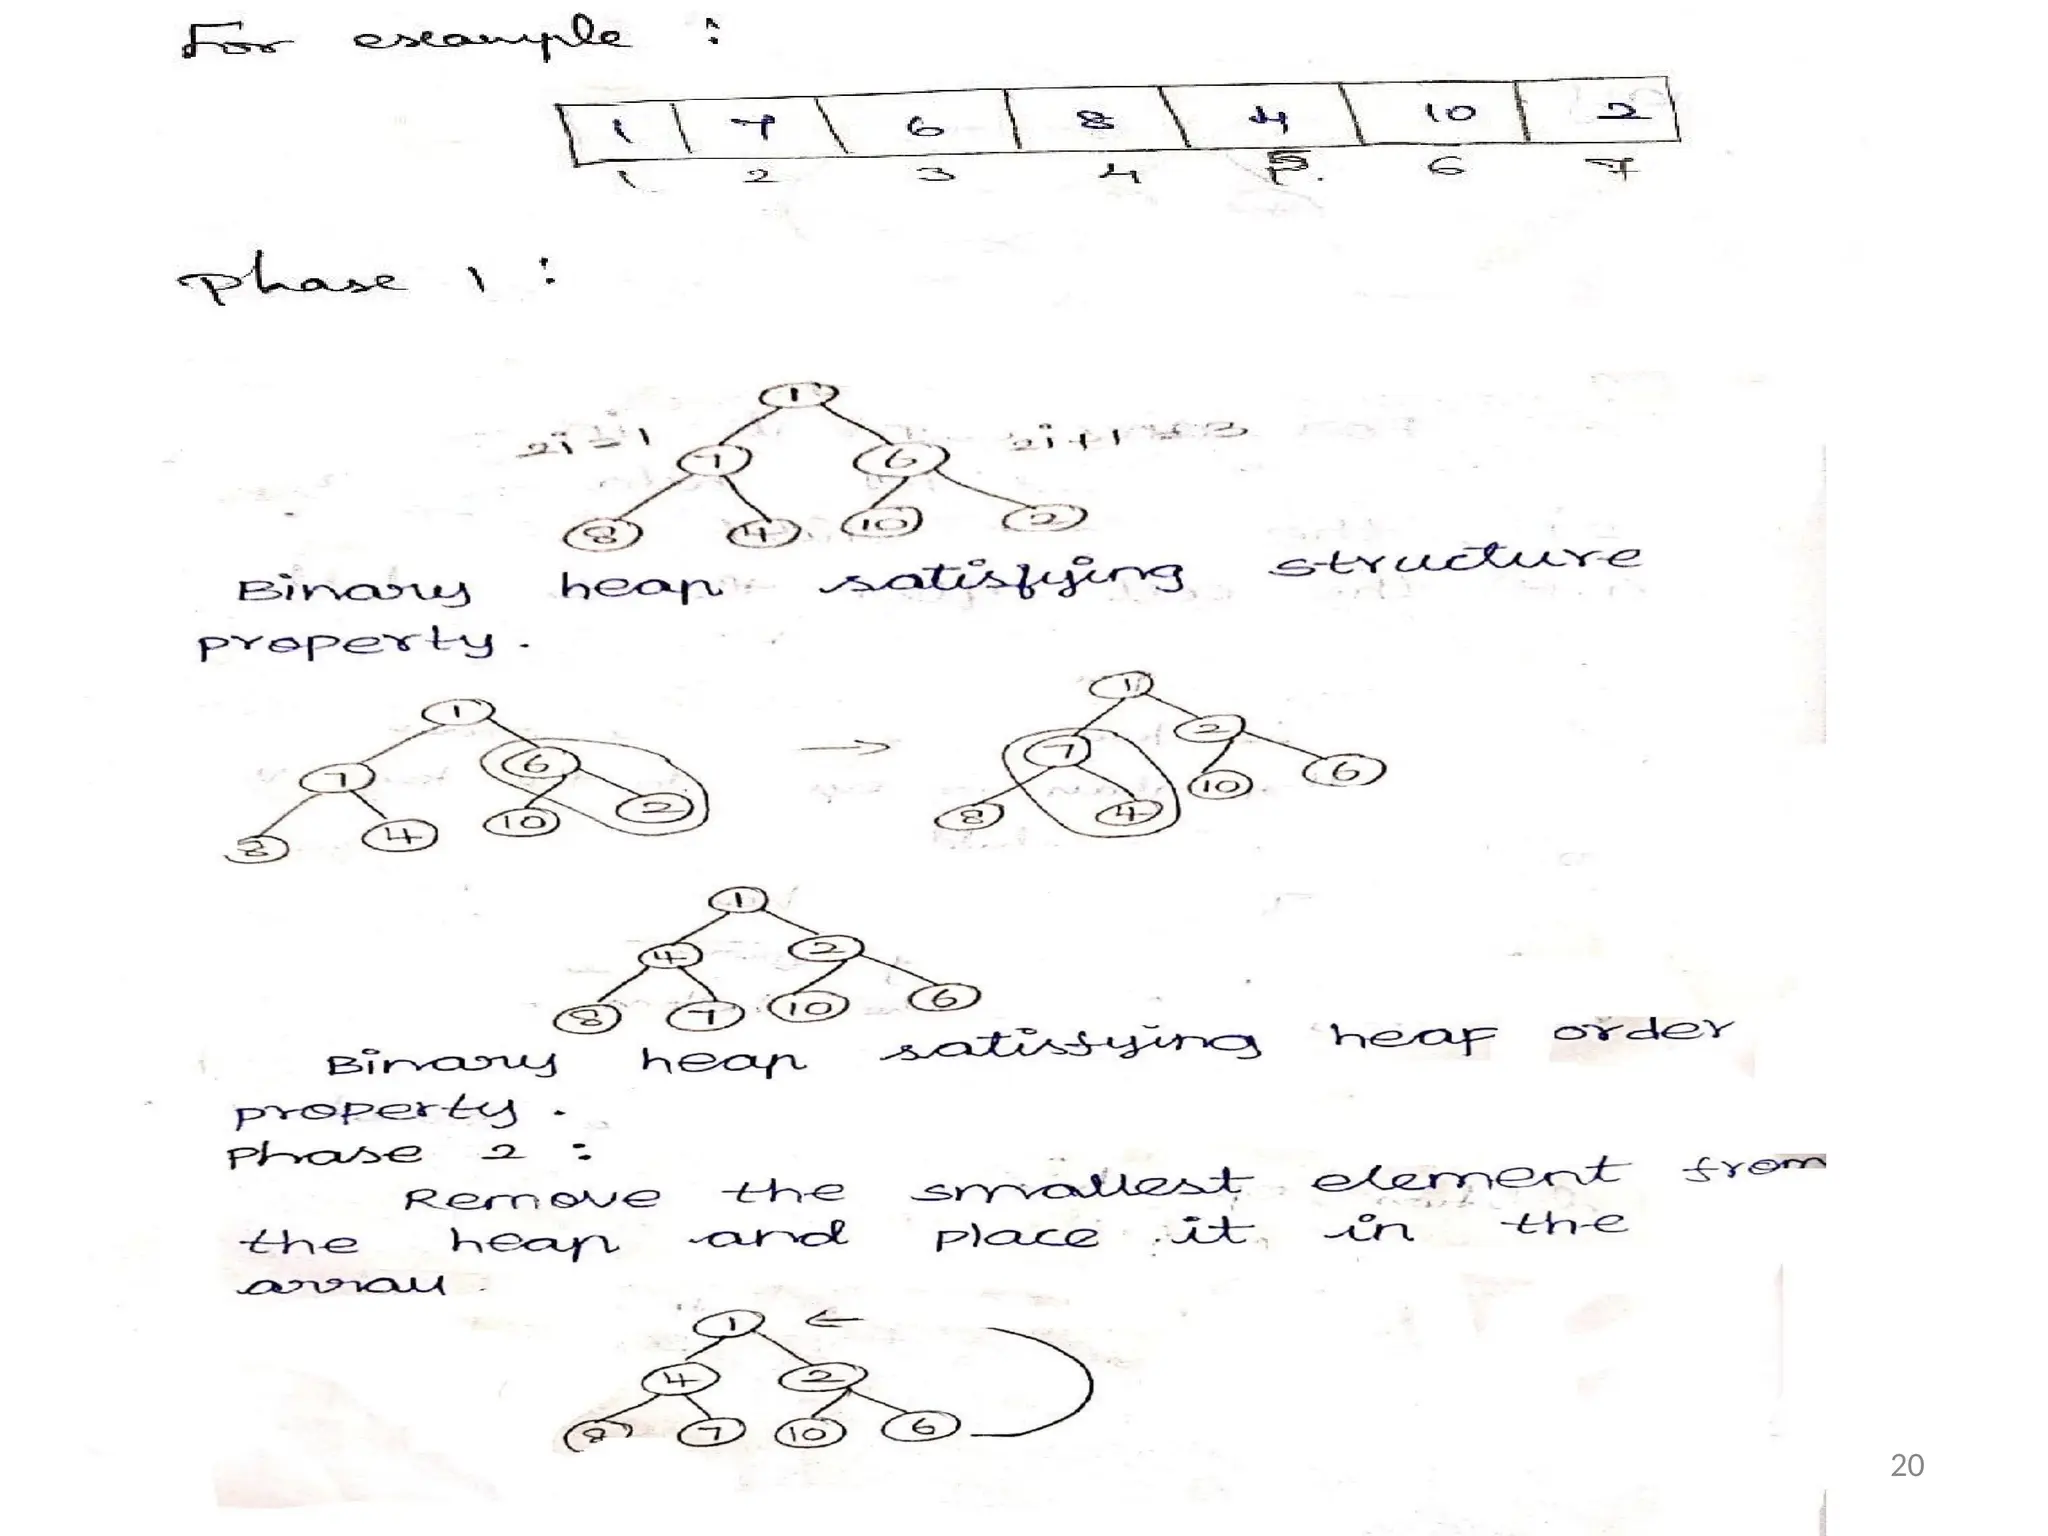 For example :
1 7 6 8 4 10 2
1 2 3 4 5 6 7
Phase 1 :
1
2i = 1 7 6 2i+1 = 3
8 4 10 2
Binary heap satisfying structure
property.
1 → 1
7 6 7 2
8 4 10 2 8 4 10 6
1
4 2
8 7 10 6
Binary heap satisfying heap order
property.
Phase 2 :
Remove the smallest element from
the heap and place it in the
array.
1 ←
4 2
8 7 10 6
20